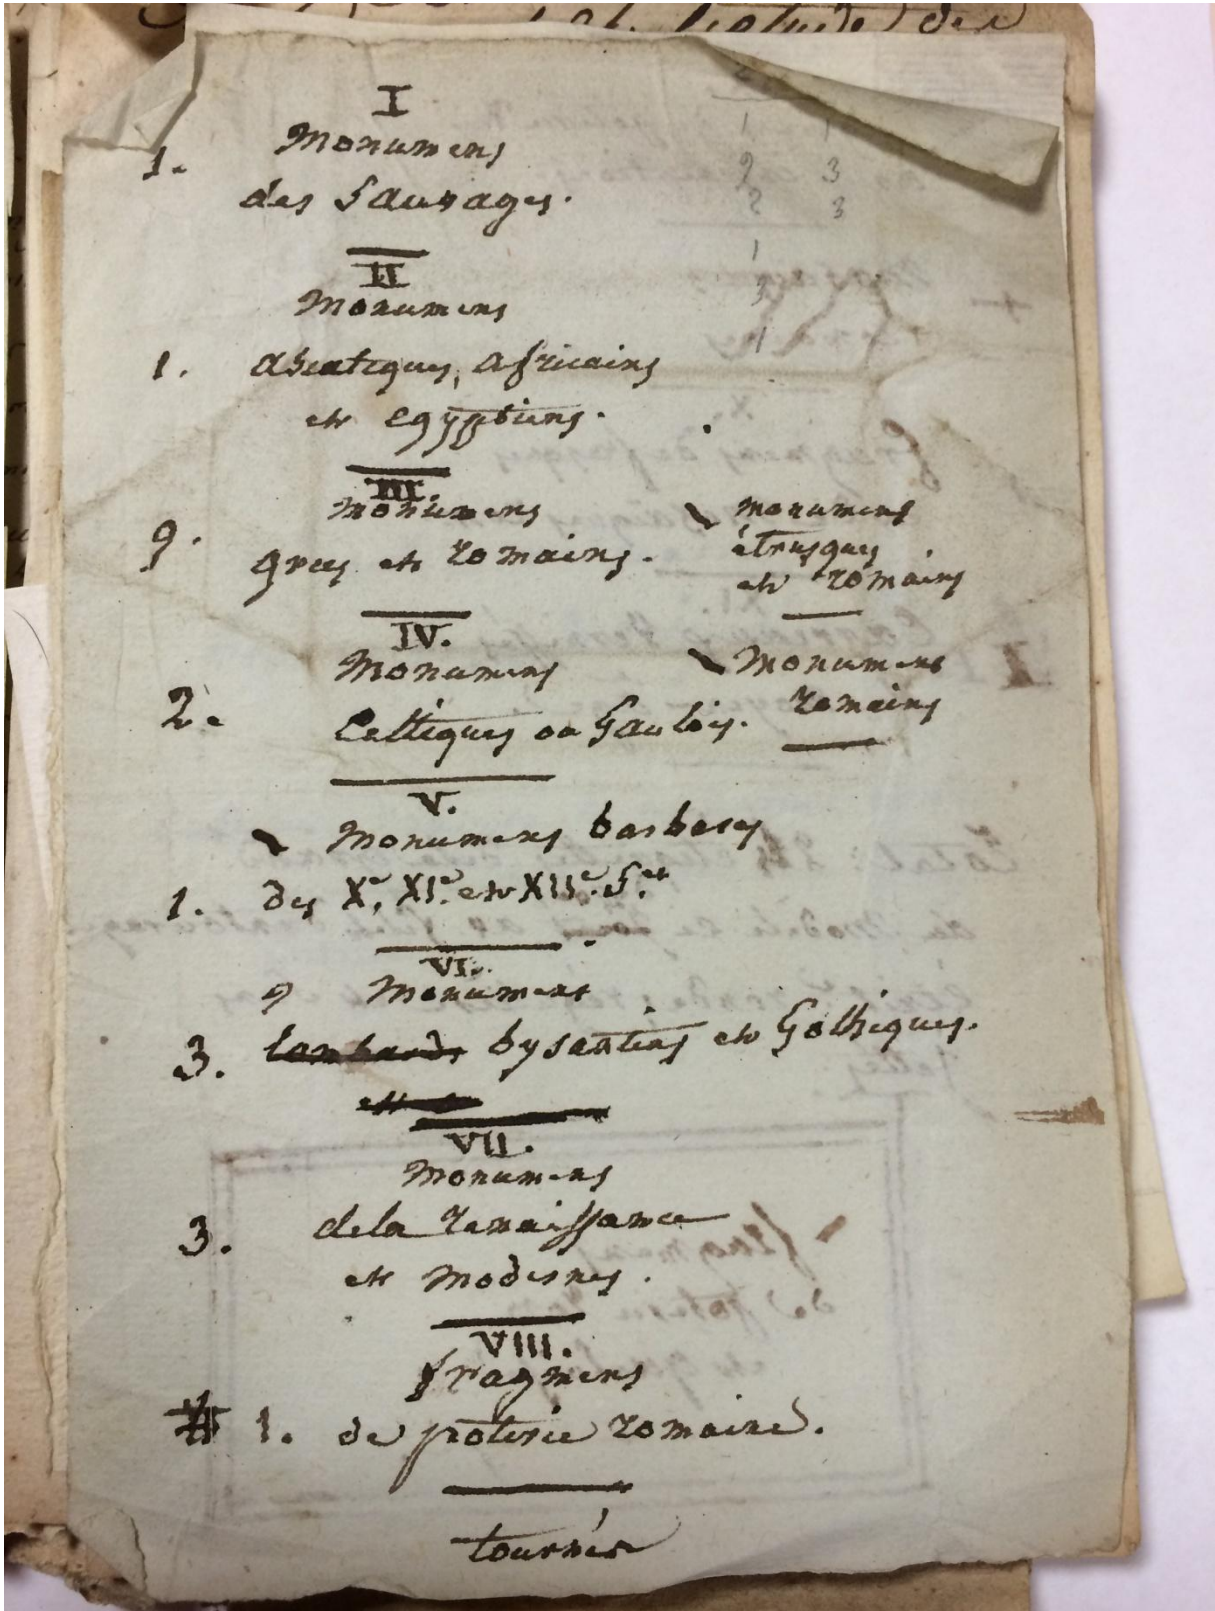 I
1. Monumens
des Sauvages.
II
Monumens
1. asiatiques, africains
et egyptiens.
III.
monumens
9. grecs et romains.
monumens
étrusques
et romains
IV.
Monumens
2. Celtiques ou Gaulois.
Monumens
romains
V.
Monumens barbares
1. des Xe, XIe. et XIIe. S.es
VI.
Monumens
3. lombards bysantins et Gothiques.
et
VII.
Monumens
3. de la renaissance
et modernes.
VIII.
fragmens
1. de poterie romaine.
tournés